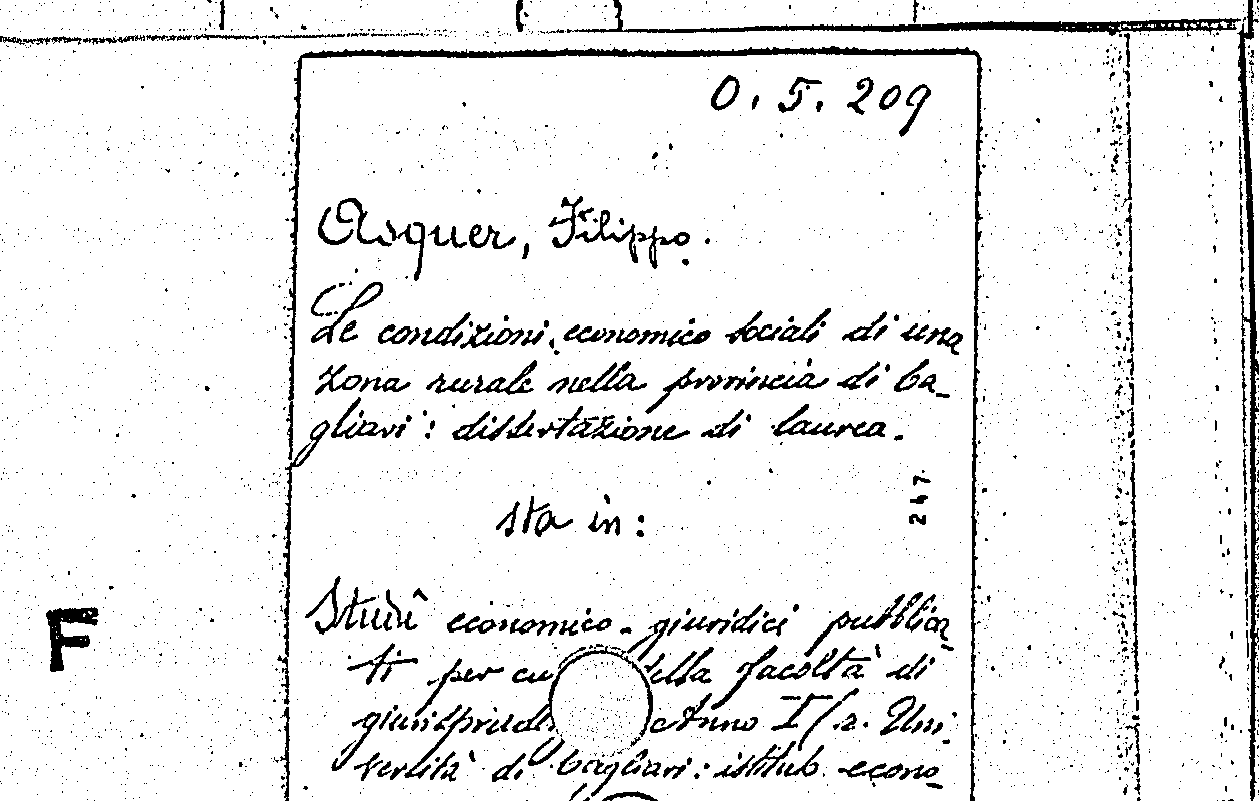 O. 5. 209
Asquer, Filippo.
Le condizioni economico sociali di una
zona rurale nella provincia di Ca-
gliari: dissertazione di laurea.
247
sta in:
Studî economico-giuridici pubblica-
F
ti per cu della facoltà di
Anno I/2. Uni-
versità di Cagliari: istitub. econo-